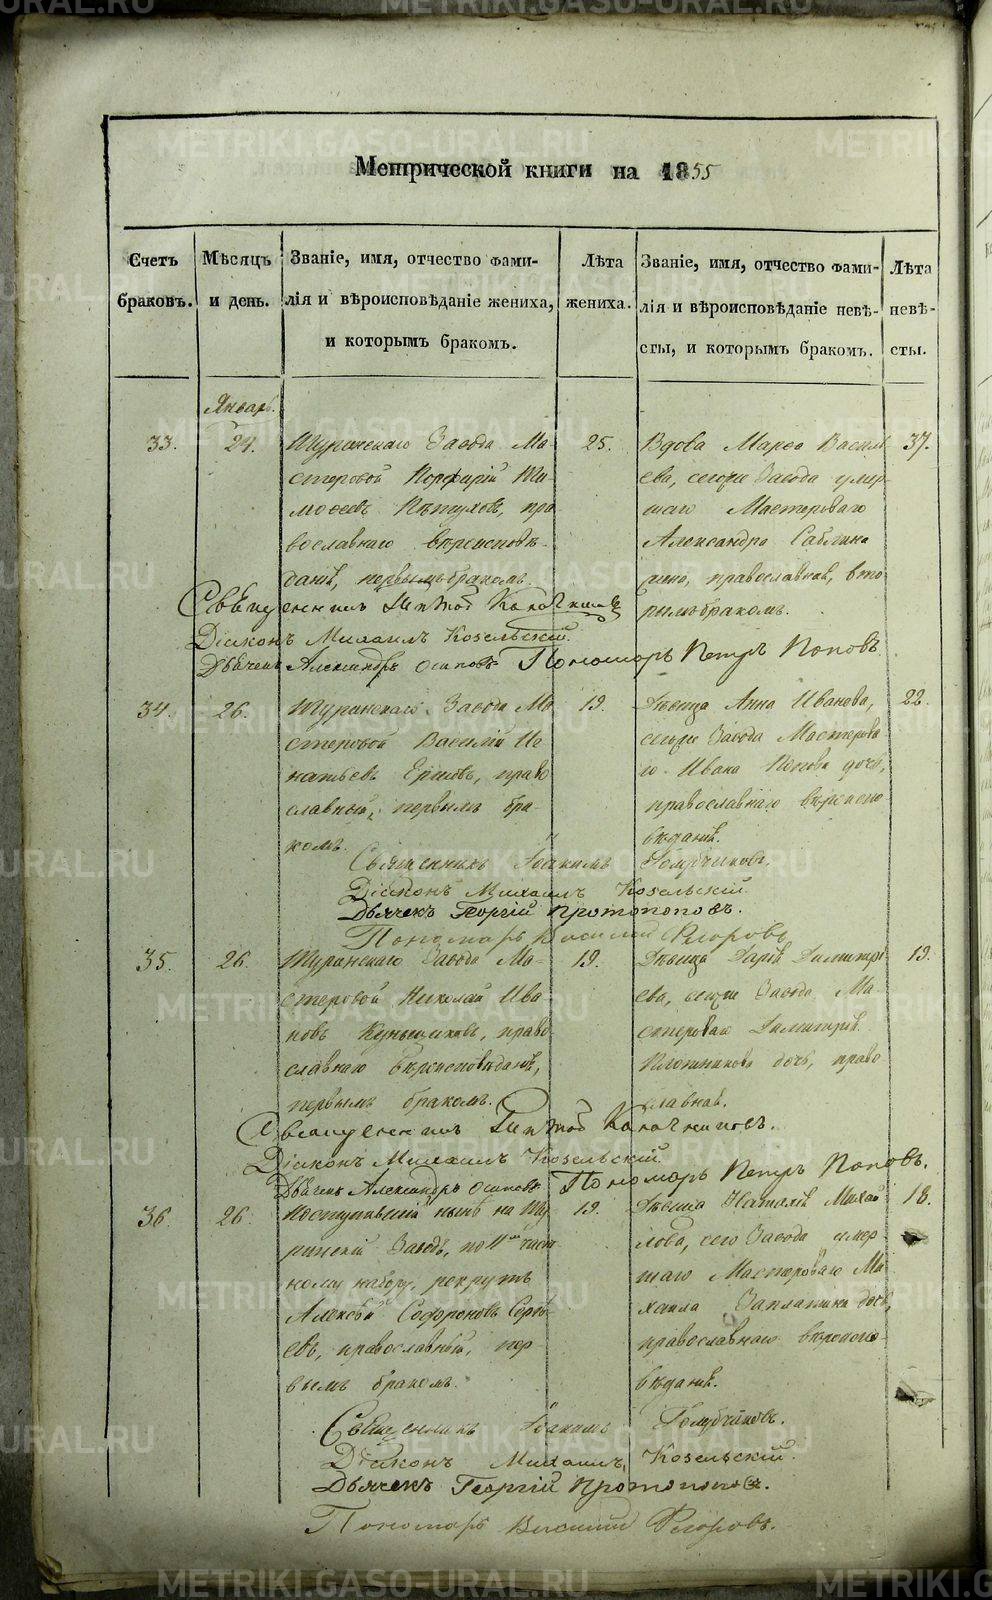 Метрической книги на 1855
Счетъ браковъ.
Мѣсяцъ и день.
Званіе, имя, отчество фами-
лія и вѣроисповѣданіе жениха,
и которымъ бракомъ.
Лѣта жениха.
Званіе, имя, отчество фами-
лія и вѣроисповѣданіе невѣ-
сты, и которымъ бракомъ.
Лѣта невѣ-
сты.
Январь.
33.
24.
Туринскаго Завода Ма-
стеровой Порфирій Ти-
моѳеевъ Пѣтуховъ, пра
вославнаго вѣроисповѣ-
данія, первымъ бракомъ.
25.
Вдова Марѳа Василь
ева, сегоже Завода умер-
шаго Мастероваго
Александра Саблина
жена, православная, вто
рымъ бракомъ.
37.
Священникъ
Діаконъ Михаилъ Козельскій.
Дьячекъ Александръ Осиповъ
Пономарь Петръ Поповъ
34.
26.
Туринскаго Завода Ма
стеровой Василій Иг
натьевъ Ершовъ, право
славный, первымъ бра-
комъ.
19.
Дѣвица Анна Иванова,
сегоже Завода Мастерова-
го Ивана Попова дочь,
православнаго вѣроиспо
вѣданія.
22.
Священникъ Іоакимъ Голубчиковъ.
Діаконъ Михаилъ Козельскій
Дьячекъ Георгій Протопоповъ.
Пономарь Василій Ѳедоровъ
35.
26.
Туринскаго Завода Ма-
стеровой Николай Ива
новъ Кунщиковъ, право
славнаго вѣроисповѣданія,
первымъ бракомъ.
19.
Дѣвица Дарья Димитрі
ева, сегоже Завода Ма-
стероваго Димитрія
Плотникова дочь, право
славная.
19.
Священникъ
Діаконъ Михаилъ Козельскій
Дьячекъ Александръ Осиповъ
Пономарь Петръ Поповъ.
36.
26.
Поступившій нынѣ на Ту
ринскій Заводъ, по 11му част
ному набору, рекрутъ
Алексѣй Софроновъ Серге
евъ, православный, пер-
вымъ бракомъ.
19.
Дѣвица Наталья Михай
лова, сего Завода умер-
шаго Мастероваго Ми
хаила Заплатина дочь,
православнаго вѣроиспо-
вѣданія.
18.
Священникъ Іоакимъ Голубчиковъ.
Діаконъ Михаилъ Козельскій.
Дьячекъ Георгій Протопоповъ.
Пономарь Василій Ѳедоровъ.
METRIKI.GASO-URAL.RU